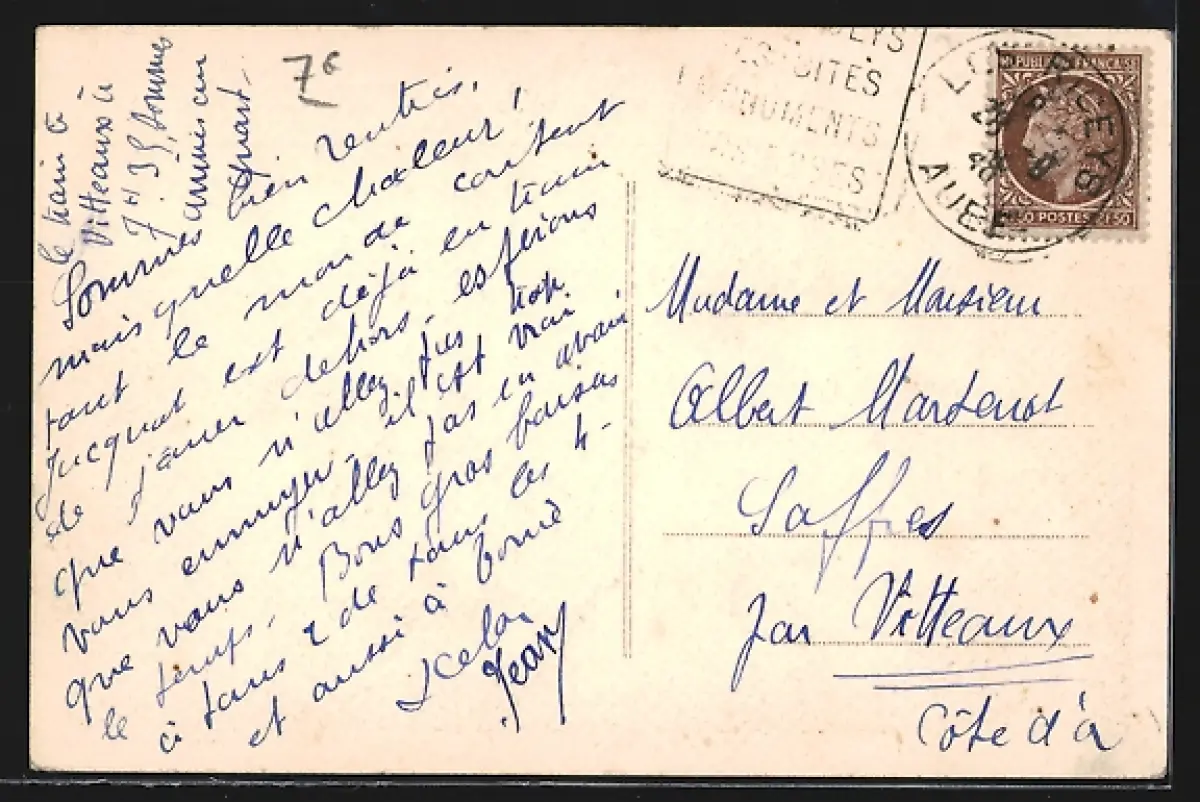 le train à
Vitteaux à
7H 35, sommes
arrivés au
quart.
7€
Sommes bien rentrés,
mais quelle chaleur !
tout le monde content
Jacquot est déjà en train
de jouer dehors, espérons
que vous n'allez pas trop
vous ennuyer, il est vrai
que vous n'allez pas en avoir
le temps. Bons gros baisers
à tous 2 de tous les 4.
et aussi à
Jean
SITES
MONUMENTS
AUBE
RÉPUBLIQUE FRANÇAISE
POSTES 2F50
Madame et Monsieur
Albert Martenot
Saffres
par Vitteaux
Côte d'Or